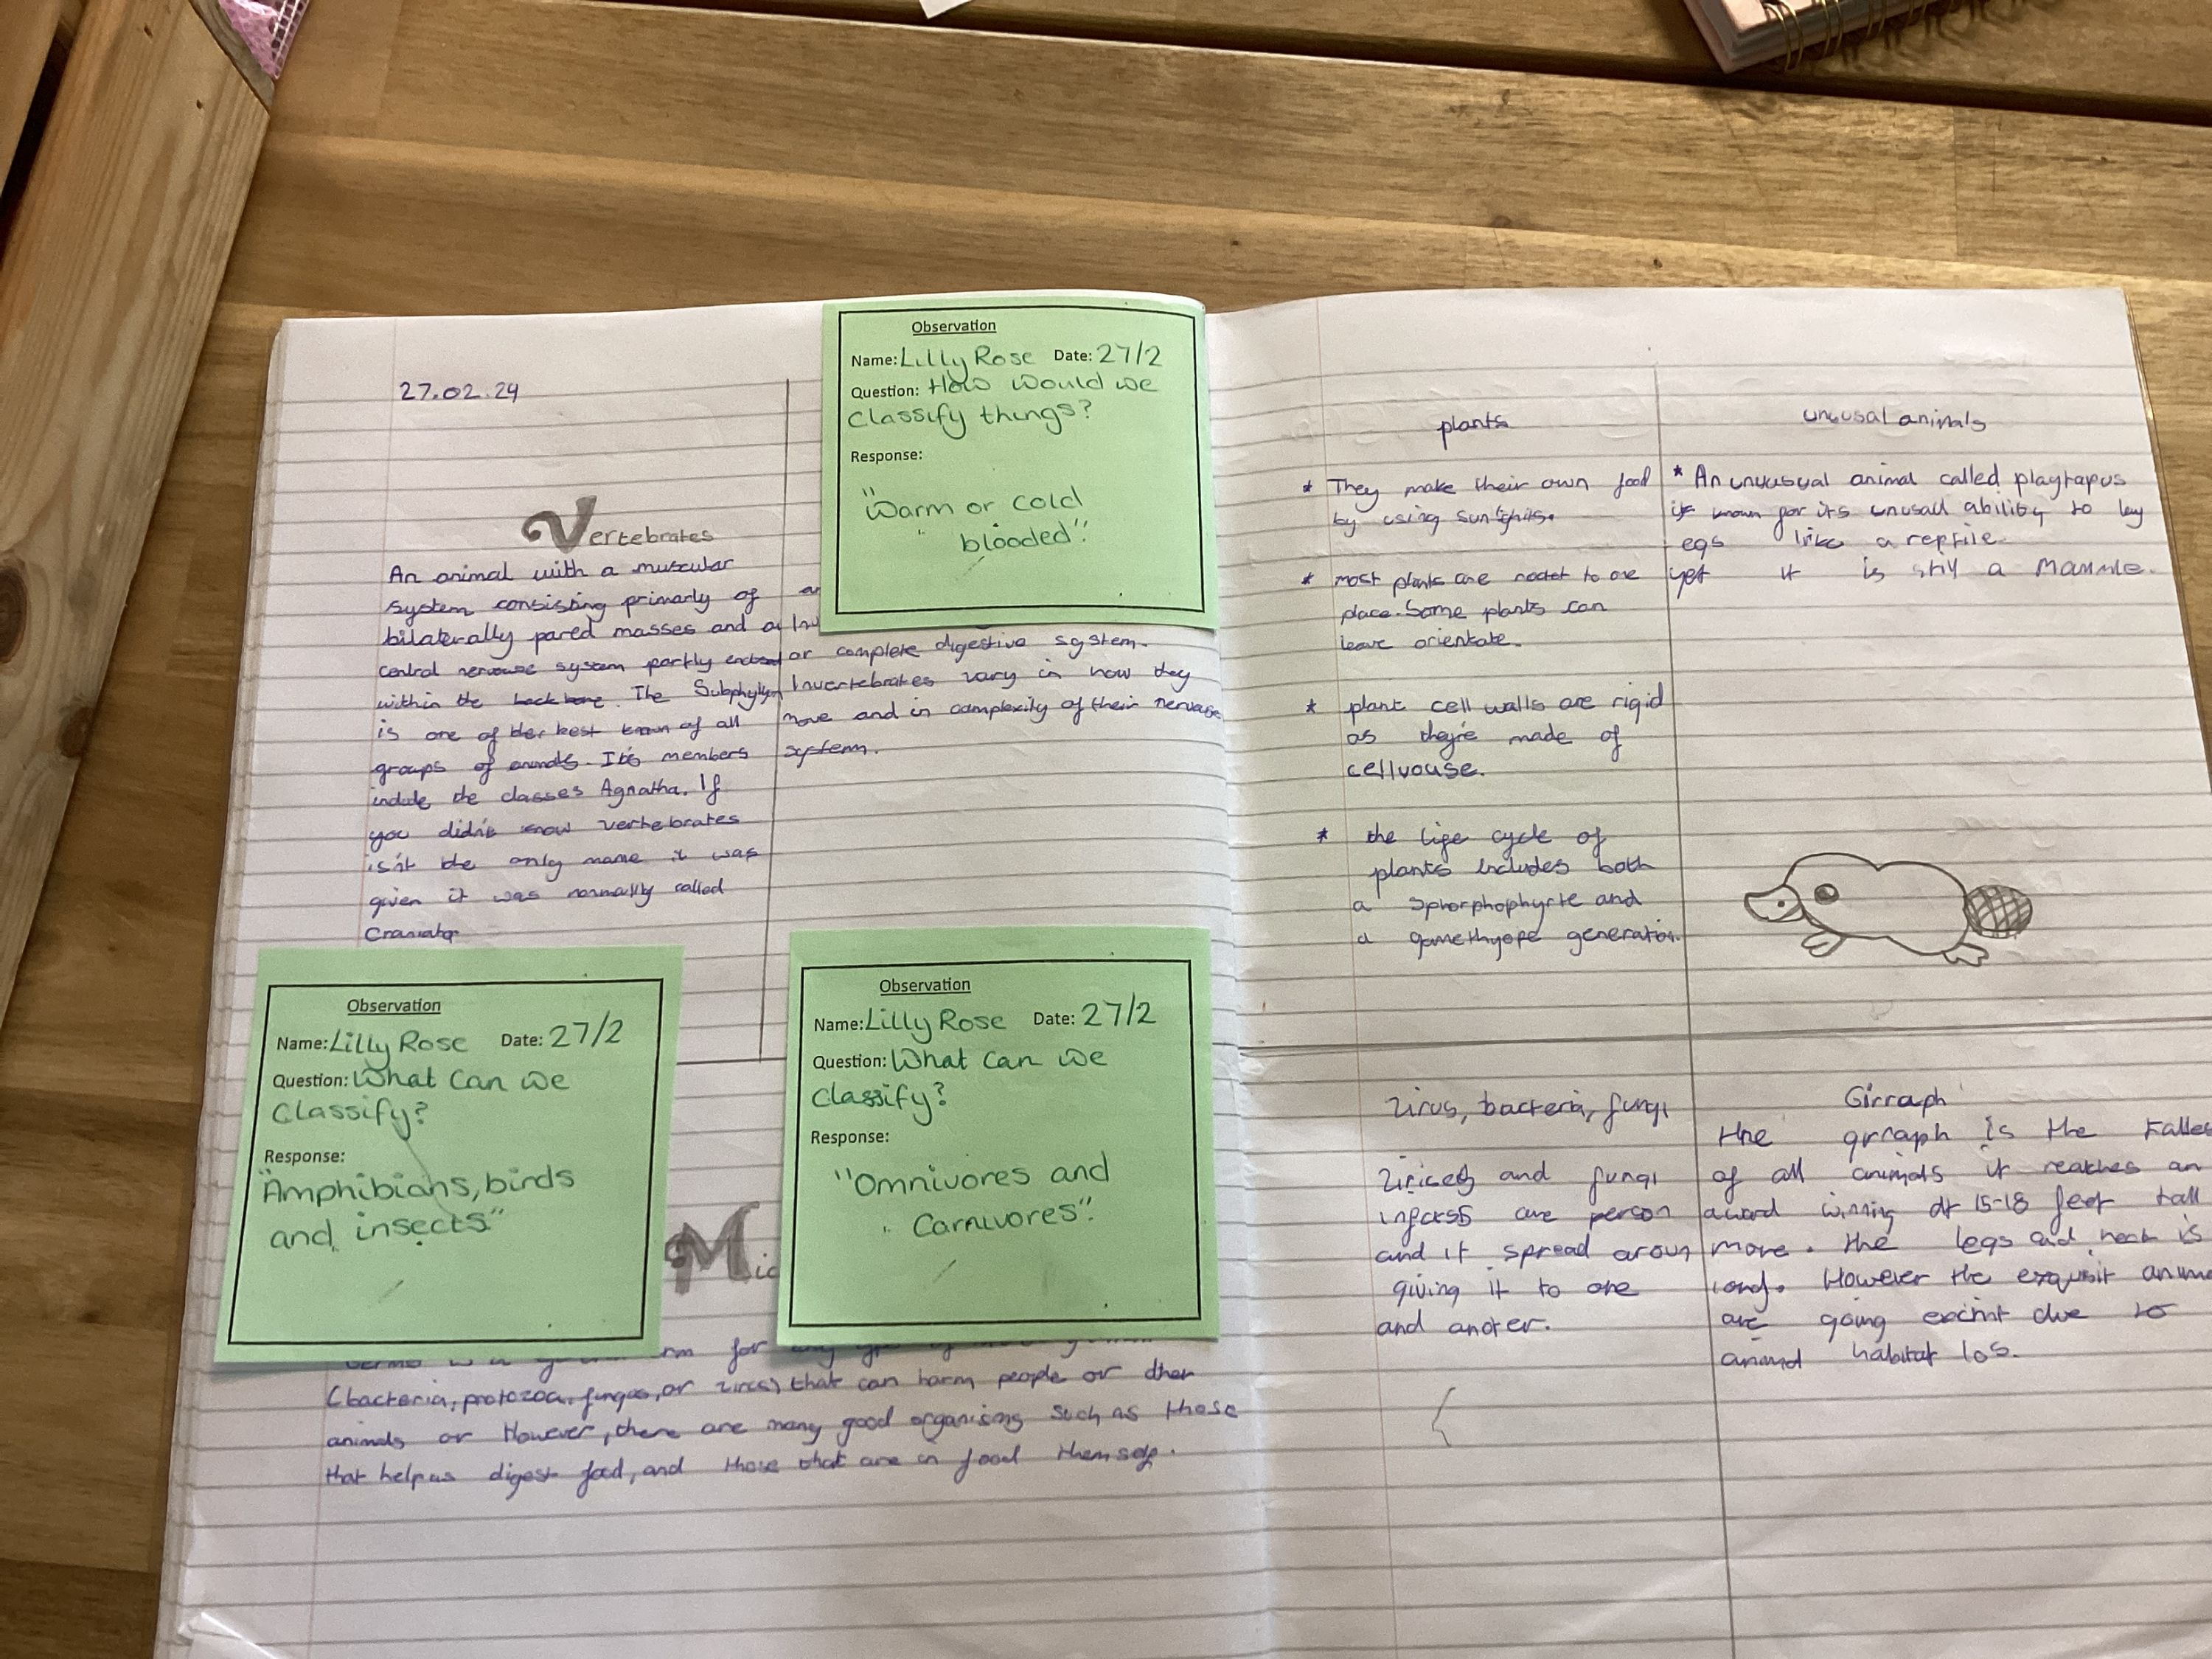 27.02.24
Vertebrates
An animal with a muscular
system consisting primarly of
bilaterally pared masses and a
central nervouse system partly
within the backbone. The Subphyllym
is one of the best known of all
groups of animals. It's members
include the classes Agnatha. If
you didn't know vertebrates
isn't the only name it was
given it was normally called
Observation
Name: Lilly Rose Date: 27/2
Question: How would we
classify things?
Response:
"Warm or cold
blooded".
or complete digestive system.
Invertebrates vary in how they
move and in complexity of their nervouse
systerm.
Observation
Name: Lilly Rose Date: 27/2
Question: What can we
classify?
Response:
"Amphibians, birds
and insects"
Observation
Name: Lilly Rose Date: 27/2
Question: What can we
classify?
Response:
"Omnivores and
Carnivores".
Mic
for
(bacteria, protozoa, fungus, or that can harm people or other
animals or However, there are many good organisms such as those
that help us digest food, and those that are in food themself.
plants
* They make their own food
by using
* most plants are to one
place. Some plants can
leave orientate.
* plant cell walls are rigid
as they're made of
cellvouse.
* the life cycle of
plants includes both
a sphorphophyrte and
a gamethyope generation.
unusal animals
* An unuusual animal called playtapus
is known for its unusall ability to lay
egs like a reptile
yet it is still a mammle.
virus, bacteria, fungi
and fungi
are person
and it spread aroun
giving it to one
and anoter.
Girraph
the grraph is the talles
of all animals it reaches an
award winning of 15-18 feet tall
more. the legs and neck is
long. However the exqusit anima
are going exctint due to
animal habitat los.